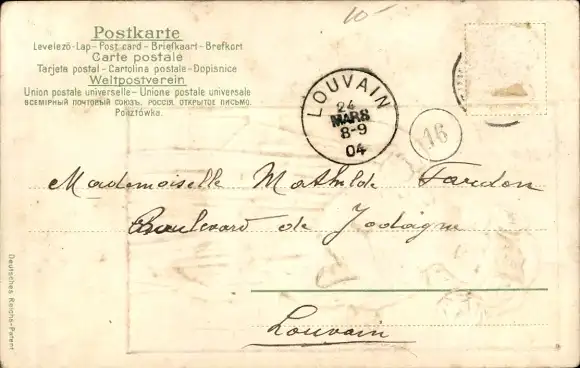 10-
Postkarte
Levelező-Lap - Post card - Briefkaart - Brefkort
Carte postale
Tarjeta postal - Cartolina postale - Dopisnice
Weltpostverein
Union postale universelle - Unione postale universale
ВСЕМІРНЫЙ ПОЧТОВЫЙ СОЮЗЪ. РОССІЯ. ОТКРЫТОЕ ПИСЬМО.
Pocztówka.
LOUVAIN
24
MARS
8-9
04
16
Mademoiselle Mathilde Tardon
Boulevard de Jodoigne
Louvain
Deutsches Reichs-Patent